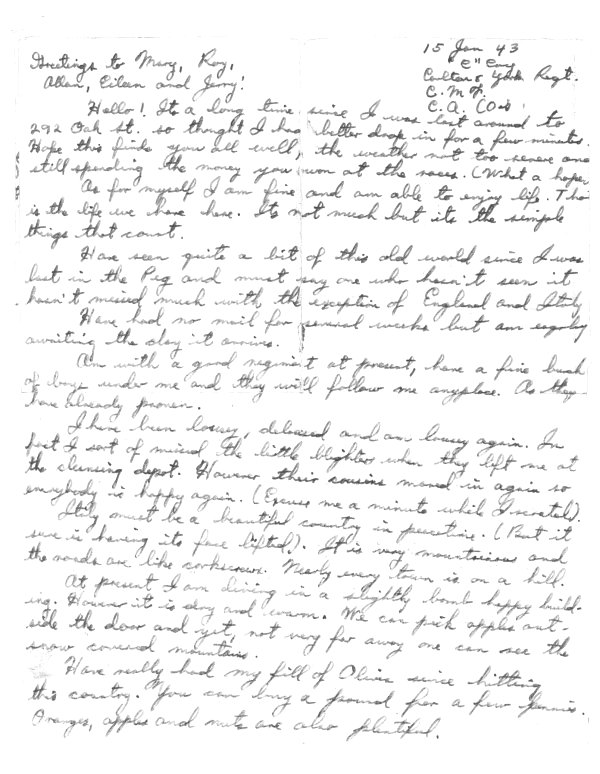 15 Jan 43
"E" Coy
Carlton & York Regt.
C.M.F.
C.A. (O.S)
Greetings to Mary, Roy,
Allan, Eileen and Jerry!
Hello! Its a long time since I was last around to
292 Oak st. so thought I had better drop in for a few minutes.
Hope this finds you all well, the weather not too severe and
still spending the money you won at the races. (What a hope)
As for myself I am fine and am able to enjoy life. That
is the life we have here. Its not much but its the simple
things that count.
Have seen quite a bit of this old world since I was
last in the Peg and must say one who hasn't seen it
hasn't missed much with the exception of England and Italy
Have had no mail for several weeks but am eagerly
awaiting the day it arrives.
Am with a good regiment at present, have a fine bunch
of boys under me and they will follow me anyplace. As they
have already proven.
I have been lousey, deloused and am lousey again. In
fact I sort of missed the little blighters when they left me at
the cleansing depot. However their cousins moved in again so
everybody is happy again. (Excuse me a minute while I scratch).
Italy must be a beautiful country in peacetime. (But it
sure is having its face lifted). It is very mountainious and
the roads are like corkscrews. Nearly every town is on a hill.
At present I am living in a slightly bomb happy build-
ing. However it is dry and warm. We can pick apples out-
side the door and yet, not very far away one can see the
snow covered mountains.
Have really had my fill of Olives since hitting
this country. You can buy a pound for a few pennies.
Oranges, apples and nuts are also plentiful.